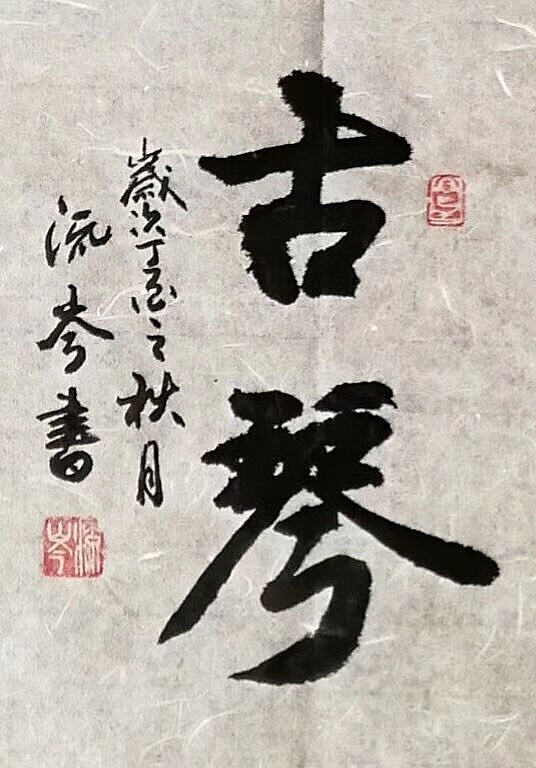 古琴
歲次丁酉之秋月
流岑書